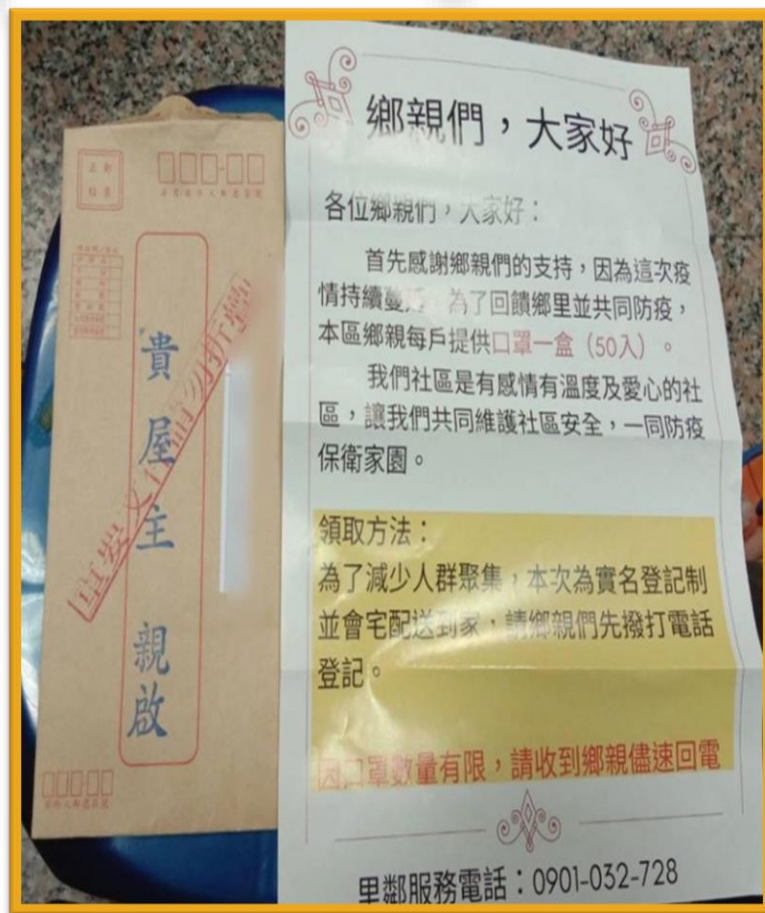 鄉親們，大家好
各位鄉親們，大家好：
首先感謝鄉親們的支持，因為這次疫
情持續蔓延，為了回饋鄉里並共同防疫，
本區鄉親每戶提供口罩一盒（50入）。
我們社區是有感情有溫度及愛心的社
區，讓我們共同維護社區安全，一同防疫
保衛家園。
領取方法：
為了減少人群聚集，本次為實名登記制
並會宅配送到家，請鄉親們先撥打電話
登記。
因口罩數量有限，請收到鄉親儘速回電
里鄰服務電話：0901-032-728
貴屋主 親啟
重要文件請勿折疊